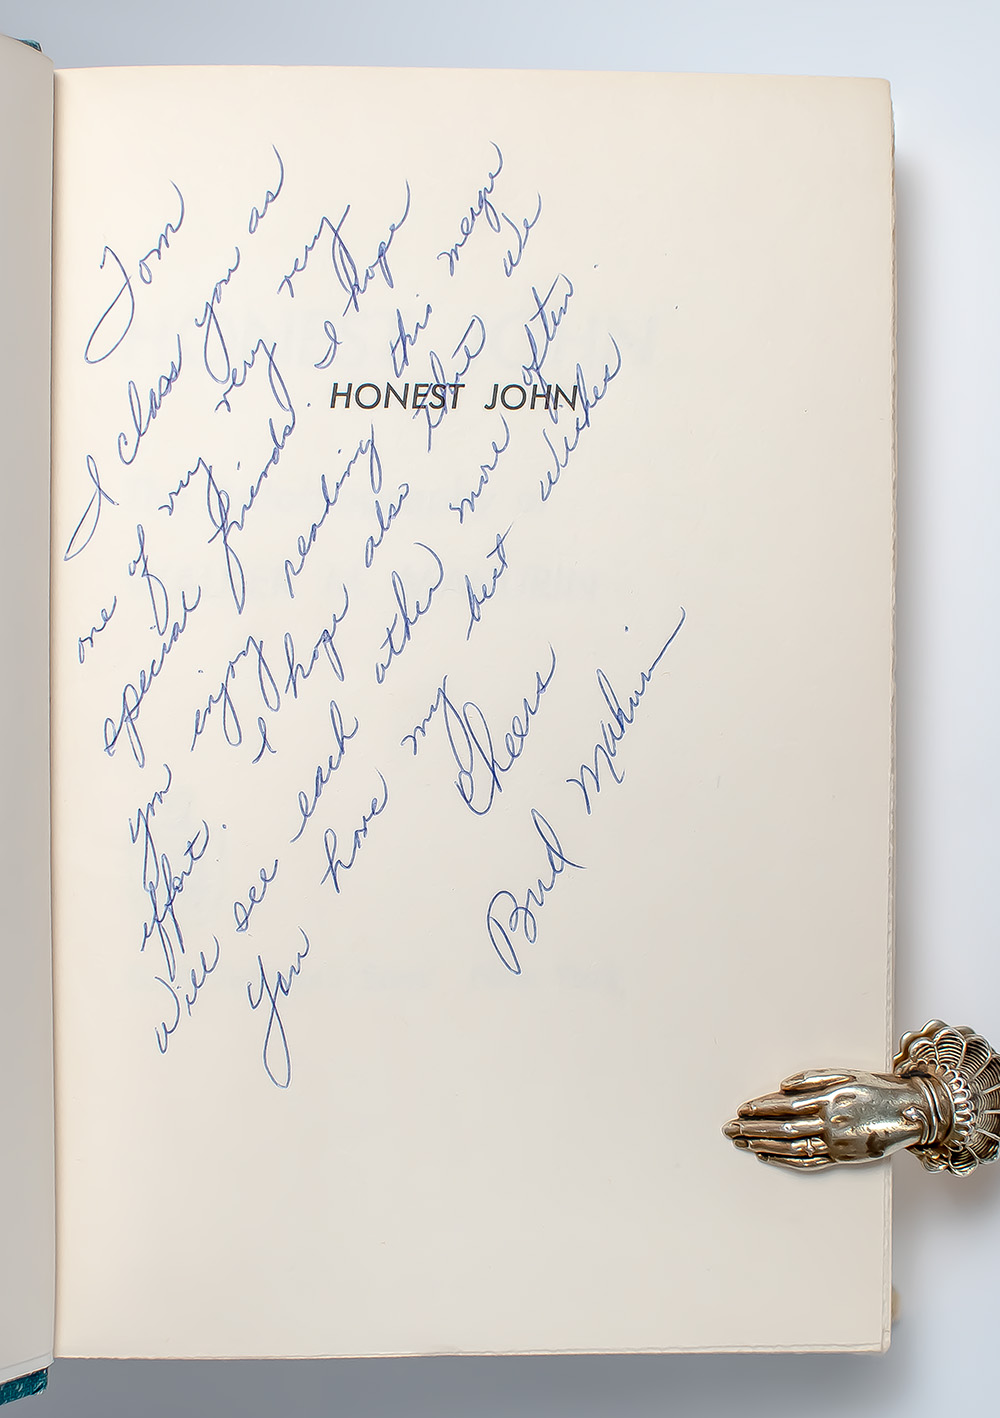 Tom
I class you as
one of my very very
special friends. I hope
you enjoy reading this meagre
effort. I hope also that we
Will see each other more often.
You have my best wishes
Cheers
Bud Mahurin
HONEST JOHN